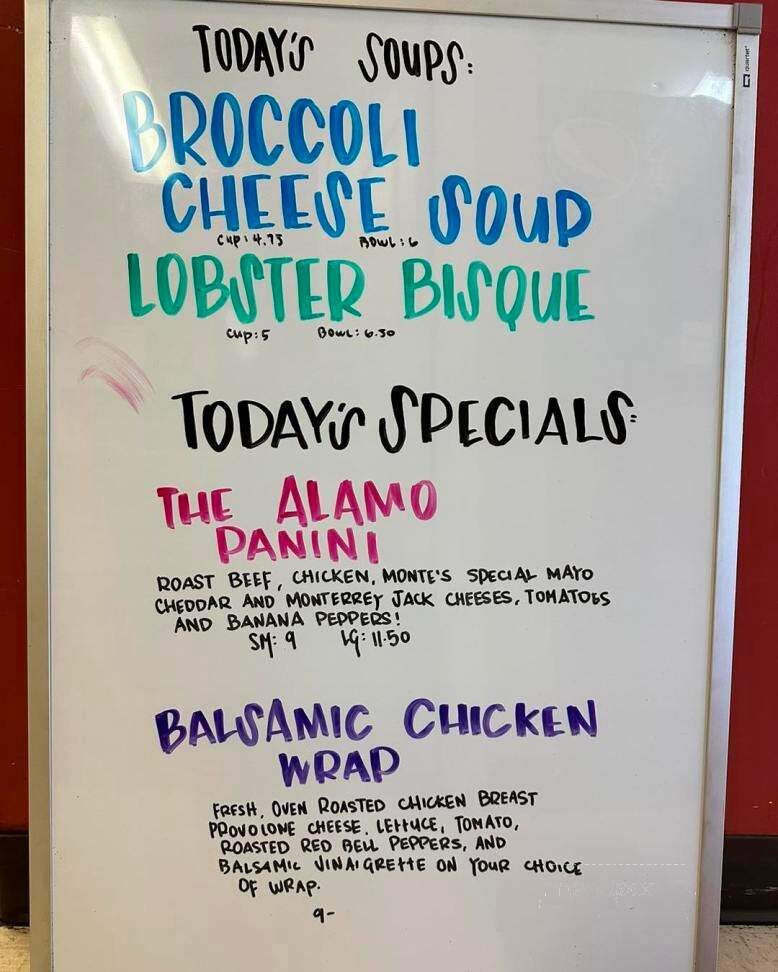 TODAY'S SOUPS:
BROCCOLI
CHEESE SOUP
CUP: 4.75 BOWL: 6
LOBSTER BISQUE
CUP: 5 BOWL: 6.50
TODAY'S SPECIALS:
THE ALAMO
PANINI
ROAST BEEF, CHICKEN, MONTE'S SPECIAL MAYO
CHEDDAR AND MONTERREY JACK CHEESES, TOMATOES
AND BANANA PEPPERS!
SM: 9 LG: 11.50
BALSAMIC CHICKEN
WRAP
FRESH, OVEN ROASTED CHICKEN BREAST
PROVOLONE CHEESE, LETTUCE, TOMATO,
ROASTED RED BELL PEPPERS, AND
BALSAMIC VINAIGRETTE ON YOUR CHOICE
OF WRAP.
9-
quartet